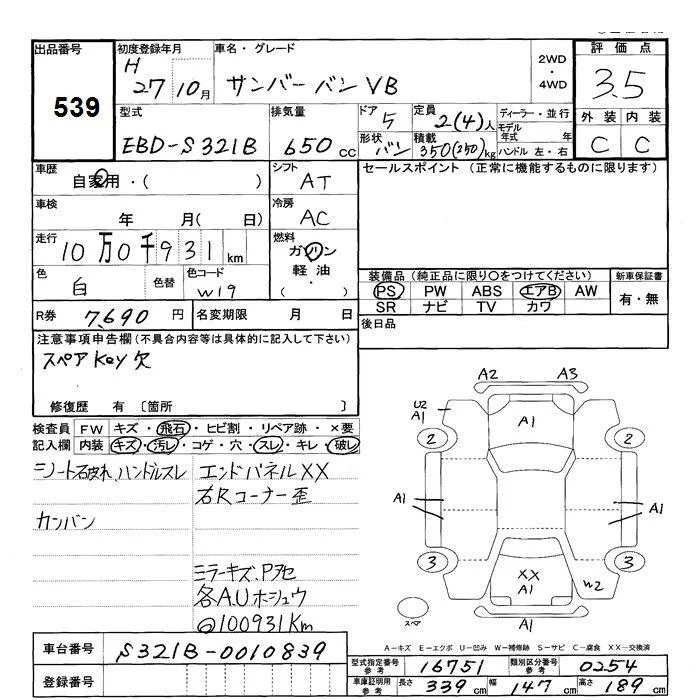 出品番号
539
初度登録年月
H
27年10月
車名・グレード
サンバーバン VB
2WD
・
4WD
評価点
3.5
外装 内装
C C
型式
EBD-S321B
排気量
650 cc
ドア
5
形状
バン
定員
2(4)人
積載
350(250)kg
ディーラー・並行
モデル年式 年
ハンドル 左・右
車歴
自家用・( )
シフト
AT
セールスポイント (正常に機能するものに限ります)
車検
年 月( 日)
冷房
AC
走行
10万0千931 km
燃料
ガソリン
軽油・
( )
色
白
色替
色コード
W19
装備品 (純正品に限り〇をつけてください)
PS PW ABS エアB AW
SR ナビ TV カワ
新車保証書
有・無
R券 7,690 円
名変期限 月 日
後日品
注意事項申告欄(不具合内容等は具体的に記入して下さい)
スペアKey欠
修復歴 有 〔箇所 〕
検査員 FW キズ・飛石・ヒビ割・リペア跡・×要
記入欄 内装 キズ・汚レ・コゲ・穴・スレ・キレ・破レ
シート破れ、ハンドルスレ
エンドパネルXX
右Rコーナー歪
カンバン
ミラーキズ、Pアセ
各A.Uホシュウ
@100931Km
A2 A3
U2
A1
A1
2 2
A1 A1
3 3
XX
A1
W2
スペア
A1
A−キズ E−エクボ U−凹み W−補修跡 S−サビ C−腐食 XX−交換済
車台番号
S321B-0010839
登録番号
型式指定番号
参考
16751
類別区分番号
参考
0254
車庫証明用
参考
長さ 339 cm 幅 147 cm 高さ 189 cm